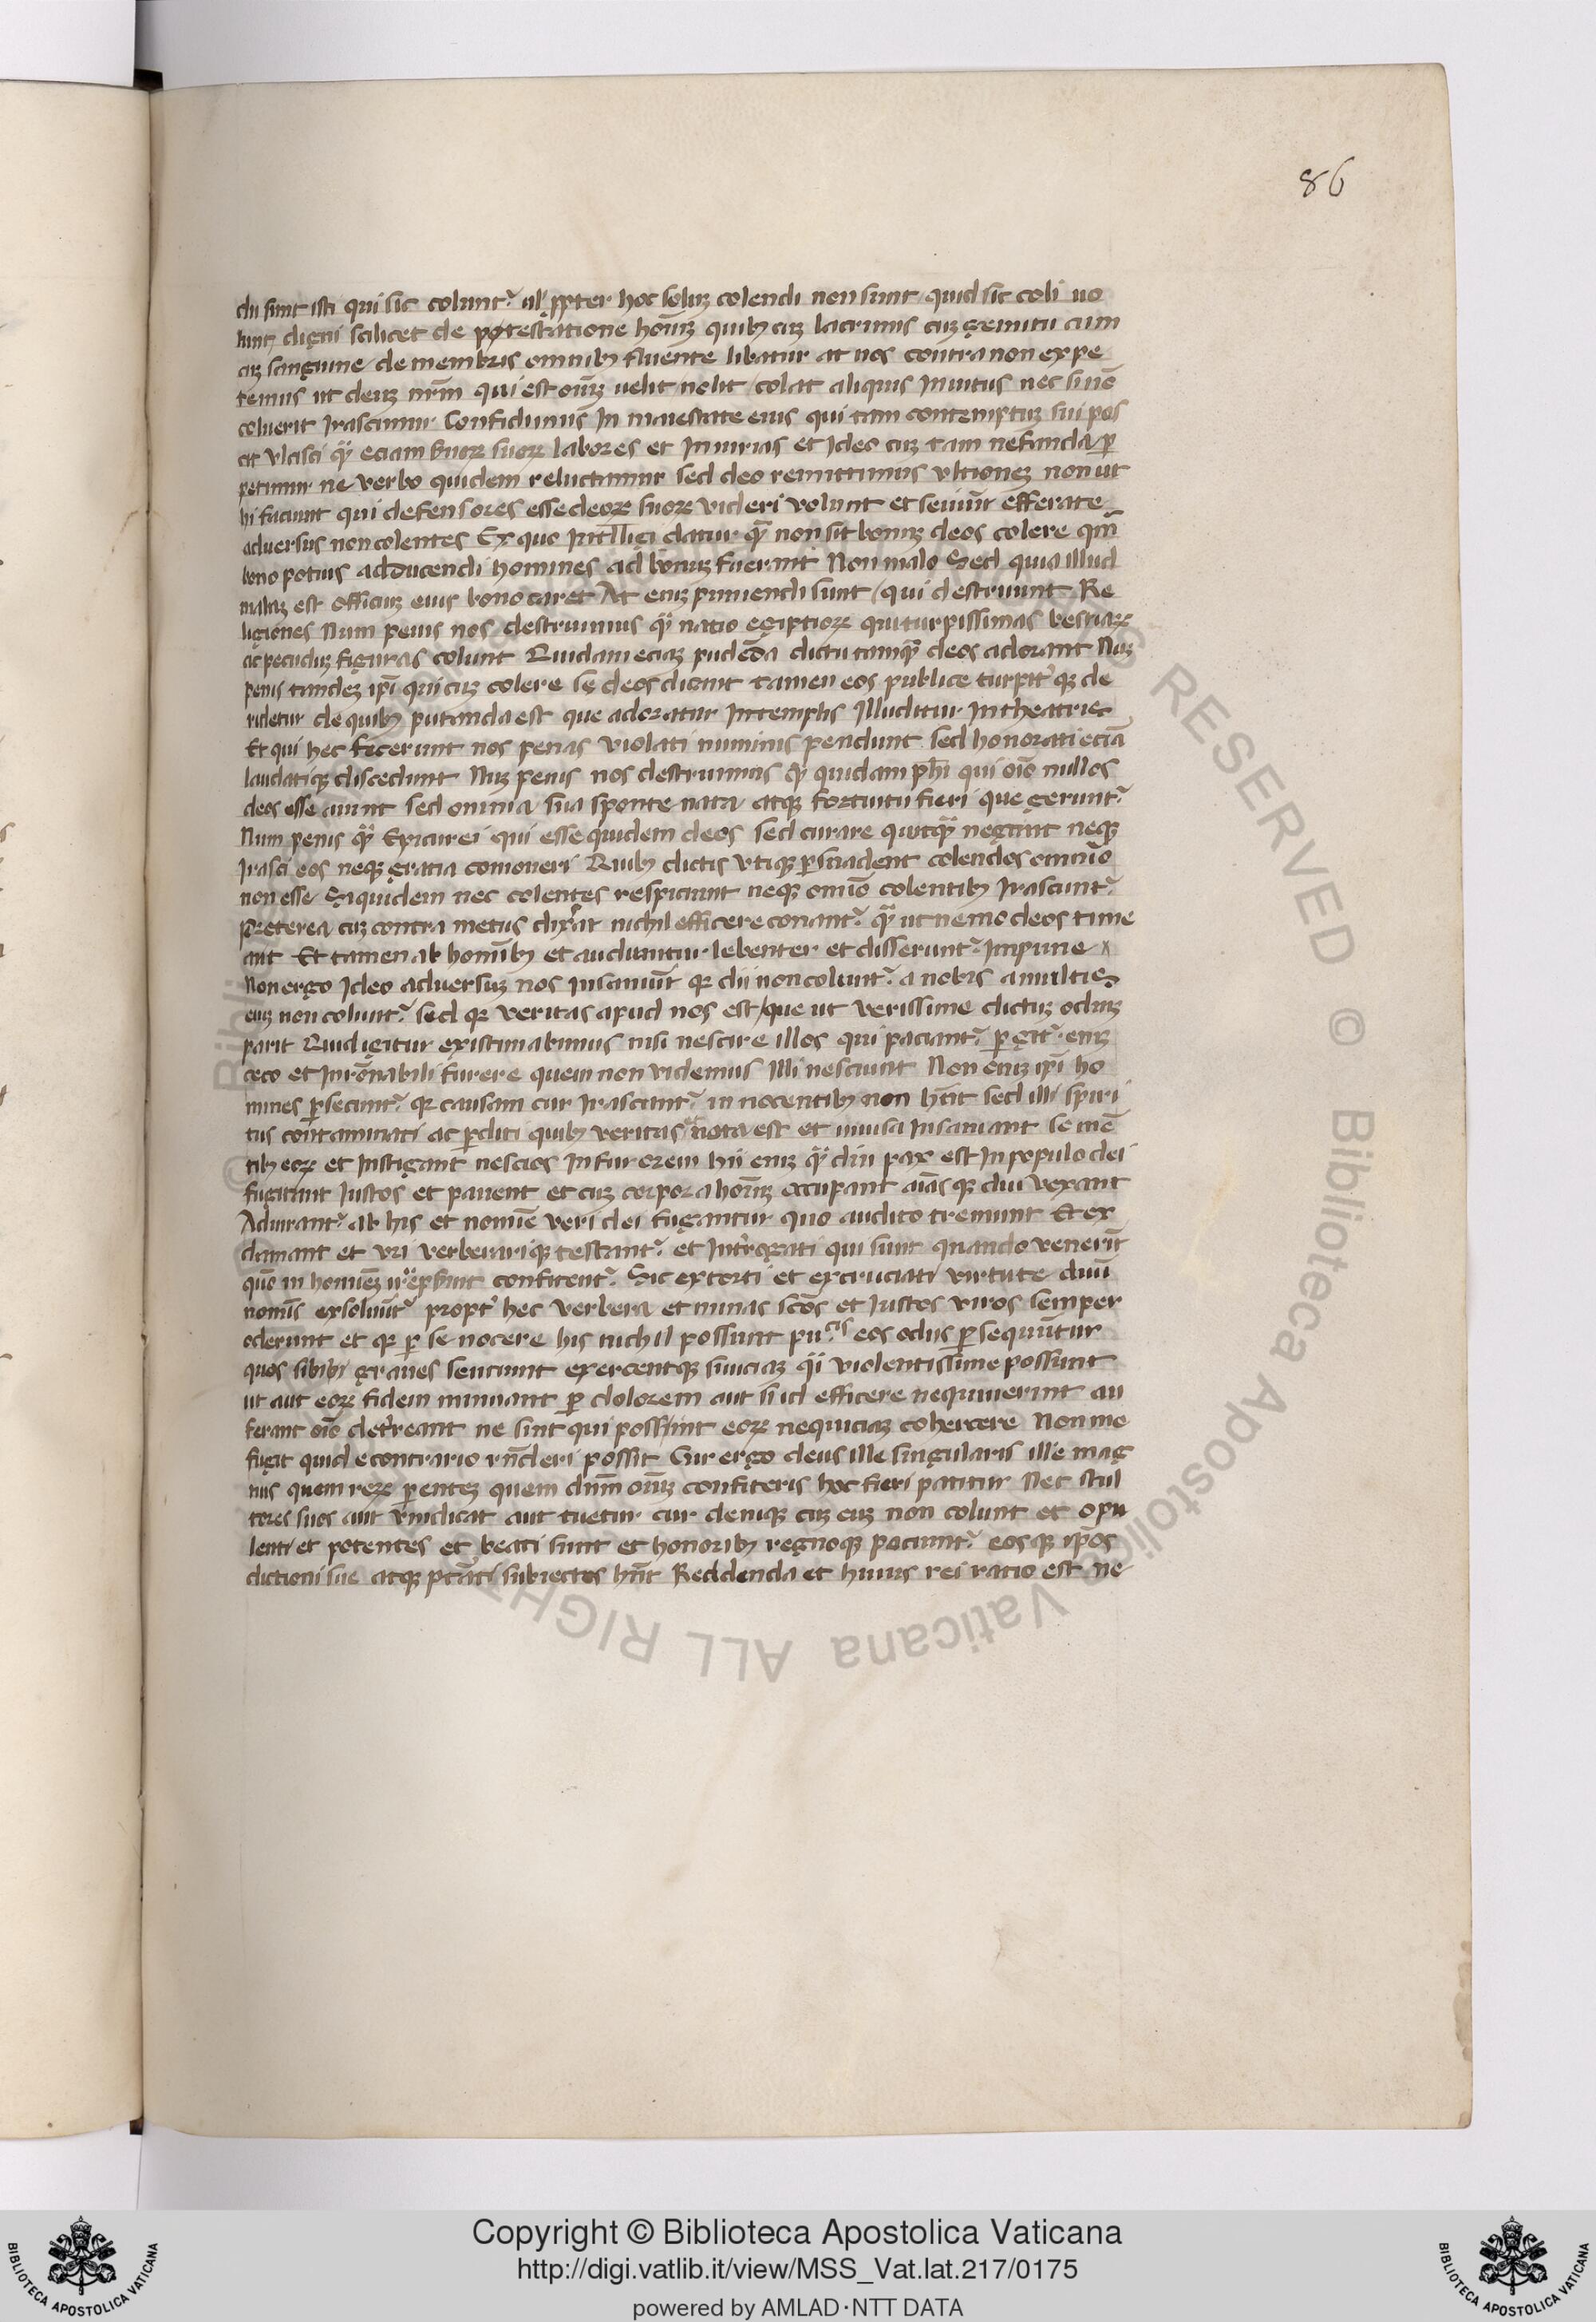 86
dii sunt isti qui sic coluntr̄ ul' ꝓpter hoc soluꝫ colendi non sunt quid sic coli uo
lunt digni scilicet de potestatione hoīuꝫ quibꝫ cuꝫ lacrimis cuꝫ gemitu cum
cuꝫ sanguine de membris omnibꝫ fluente libatur at nos contra non expe
temus ut deuꝫ nr̄m qui est oīuꝫ uelit nolit colat aliquis Inuitus nec si nō
coluerit Irascimur Confidimus In maiestate eius qui tam contemptuꝫ sui pos
sit Vlcisci qͣꝫ eciam suoꝝ labores et Iniurias et Ideo cuꝫ tam nefanda ꝑ
petimur ne verbo quidem reluctamur sed deo remittimus Vltionēꝫ non ut
hi faciunt qui defensores esse deoꝝ suoꝝ videri volunt et seuiūt efferate
aduersus non colentes Ex quo Intelligi datur qͣꝫ non sit bonuꝫ deos colere qm̄
bono potius adducendi homines ad bonuꝫ fuerant Non malo Sed quia illud
maluꝫ est officiuꝫ eius bono caret At eniꝫ puniendi sunt qui destruunt Re
ligiones Num peius nos destruimus qͣꝫ natio egiptioꝝ qui turpissimas bestiaꝝ
ac pecuduꝫ figuras colunt Quidam eciaꝫ pudēda dictu tamqͣꝫ deos adorant Nuꝫ
peius tandeꝫ ip̄i qui cuꝫ colere se deos dicant tamen eos publice turpitʼqꝫ de
ridetur de quibꝫ putanda est que adoratur In templis Illuditur In theatris
Et qui hec fecerunt nos penas violati numinis pendunt sed honorati eciā
laudatiqꝫ discedunt Nuꝫ peius nos destruimus qͣꝫ quidam ph̄i qui oīo nullos
deos esse aiunt sed omnia sua sponte nata atqꝫ fortuitu fieri que geruntr̄
Num peius qͣꝫ Epicurei qui esse quidem deos sed curare quicqͣꝫ negant neqꝫ
Irasci eos neqꝫ gratia comoueri Quibꝫ dictis vtiqꝫ ꝑsuadent colendos omnīo
non esse Siquidem nec colentes respiciunt neqꝫ omīo colentibꝫ Irascuntr̄
preterea cuꝫ contra metus dixʼat nichil efficere conantr̄ qͣꝫ ut nemo deos time
ant Et tamen ab homībꝫ et audiuntur lebenter et disseruntr̄ Impune
Non ergo Ideo aduersuꝫ nos Insaniūt qꝛ dii non coluntr̄ a nobis a multis
eniꝫ non coluntr̄ sed qꝛ veritas apud nos est que ut verissime dictuꝫ odiuꝫ
parit Quid igitur existimabimus nisi nescire illos qui paciantr̄ ꝑgitr̄ eniꝫ
ceco et Inrōnabili furere quem non videmus Illi nesciunt Non eniꝫ ip̄i ho
mines ꝑsecuntr̄ qꝛ causam cur Irascantr̄ innocentibꝫ non hn̄t sed illi spiri
tus contaminati ac ꝑditi quibꝫ veritas nota est et inuisa Insaniant se mē
tibꝫ eoꝝ et Instigant nescios In furorem hii eniꝫ qͣꝫ diu pax est In populo dei
fugitant Iustos et pauent et cuꝫ corpora hoīuꝫ occupant aīasqꝫ diu vexant
Adiurantr̄ ab his et nomīe veri dei fugantur quo audito tremunt Et ex
clamant et vri verberariqꝫ testantr̄ et Intʼrogati qui sunt quando venerīt
quō in homīeꝫ irrepserint confitentr̄ Sic extorti et excruciati virtute diuī
nomīs exsoluūtr̄ proptʼ hec verbera et minas scōs et Iustos viros semper
oderunt et qꝛ ꝑ se nocere his nichil possunt puᶜⁱˢ eos odiis ꝑsequūntur
quos sibi graues senciunt exercentqꝫ seuiciaꝫ qͣꝫ violentissime possunt
ut aut eoꝝ fidem minuant ꝑ dolorem aut si id efficere nequiuerint au
ferant oīo detʼreant ne sint qui possint eoꝝ nequiciaꝫ cohercere Non me
fugit quid econtrario rn̄deri possit Cur ergo deus ille singularis ille mag
nus quem reꝝ ꝑentēꝫ quem dn̄m oīuꝫ confiteris hoc fieri patitur Nec cul
tores suos aut vindicat aut tuetur cur deniqꝫ cuꝫ euꝫ non colunt et opu
lenti et potentes et beati sunt et honoribꝫ regnoqꝫ pociuntr̄ eosqꝫ ip̄os
dictioni sue atqꝫ ptāti subiectos hn̄t Reddenda et huius rei ratio est ne
Copyright © Biblioteca Apostolica Vaticana
http://digi.vatlib.it/view/MSS_Vat.lat.217/0175
powered by AMLAD·NTT DATA
BIBLIOTECA APOSTOLICA VATICANA
BIBLIOTECA APOSTOLICA VATICANA
© Biblioteca Apostolica Vaticana ALL RIGHTS RESERVED